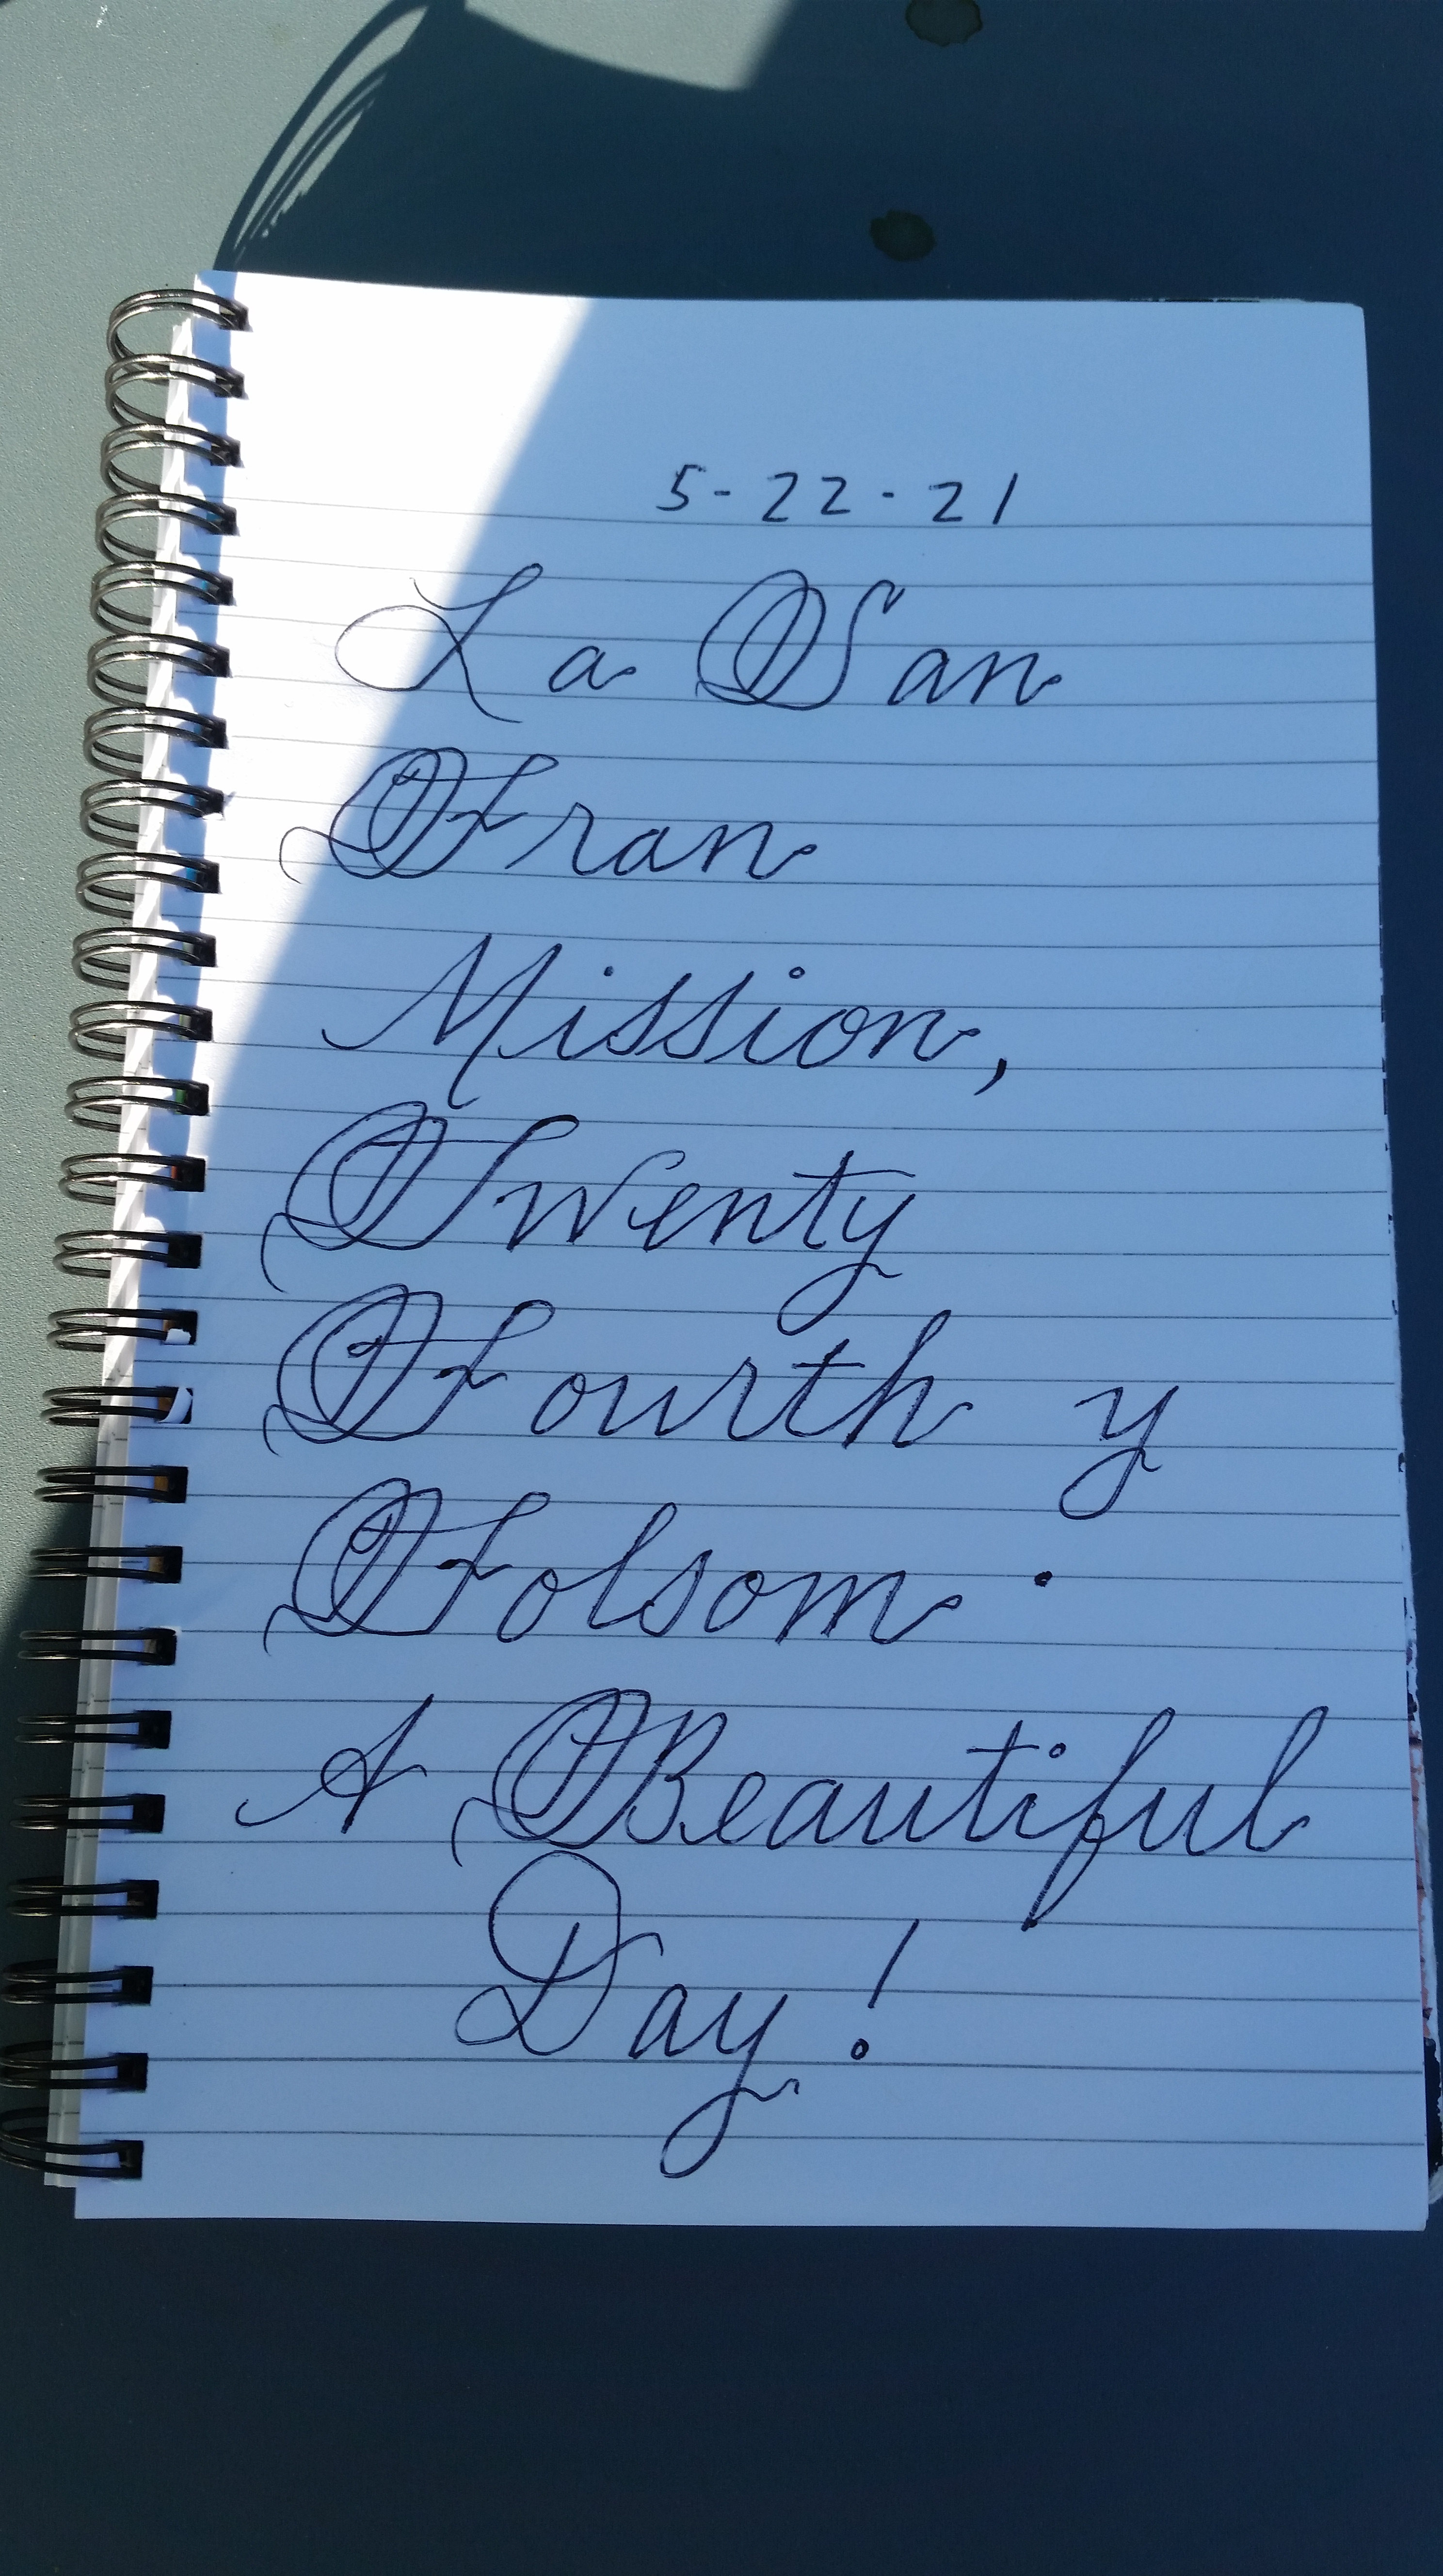 5-22-21
La San
Fran
Mission,
Twenty
Fourth y
Folsom.
A Beautiful
Day!